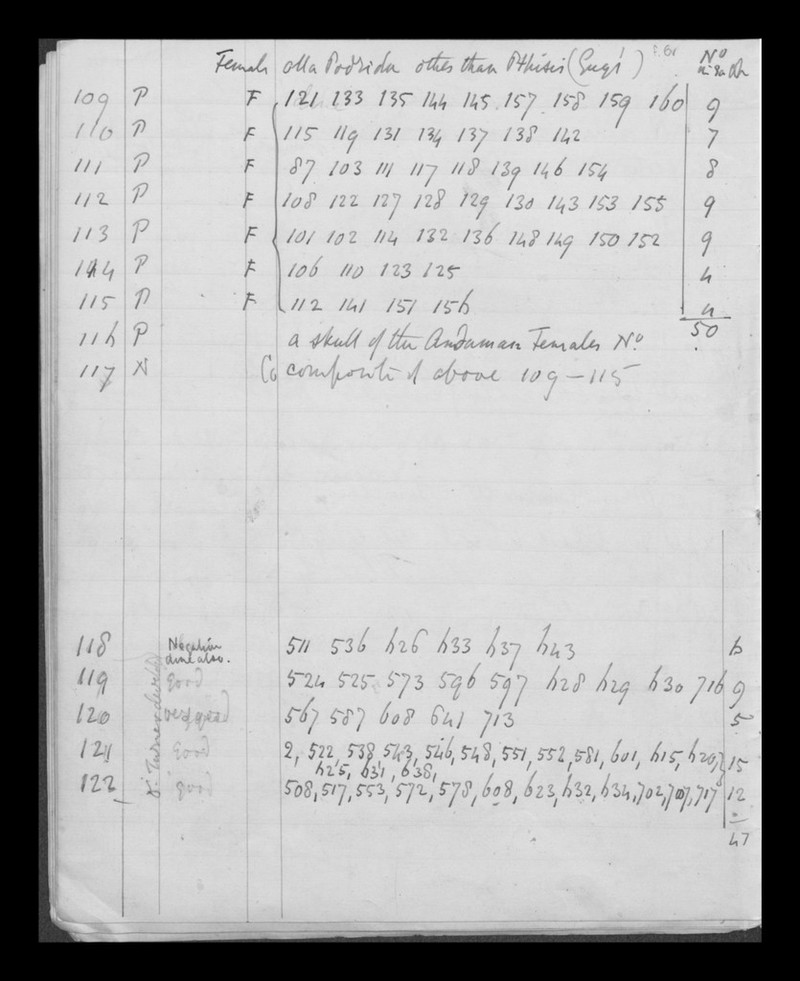 Female olla Podrida other than Pthisis (Guys') No in each
109 P F 121 133 135 144 145 157 158 159 160 9
110 P F 115 119 131 134 137 138 142 7
111 P F 87 103 111 117 118 139 146 154 8
112 P F 108 122 127 128 129 130 143 153 155 9
113 P F 101 102 114 132 136 148 149 150 152 9
114 P F 106 110 123 125 4
115 P F 112 141 151 156 4
50
116 P a skull of the Andaman Females No.
117 N Co composite of above 109 – 115
118 Negative done also. 511 536 626 633 637 643 6
119 good 524 525 573 596 597 628 629 630 716 9
120 very good 567 587 608 641 713 5
121 good 2, 522 538 543, 546, 548, 551, 552, 581, 601, 615, 620, 15
625, 631, 638,
122 good 508, 517, 553, 572, 578, 608, 623, 632, 634, 702, 707, 717 12
47